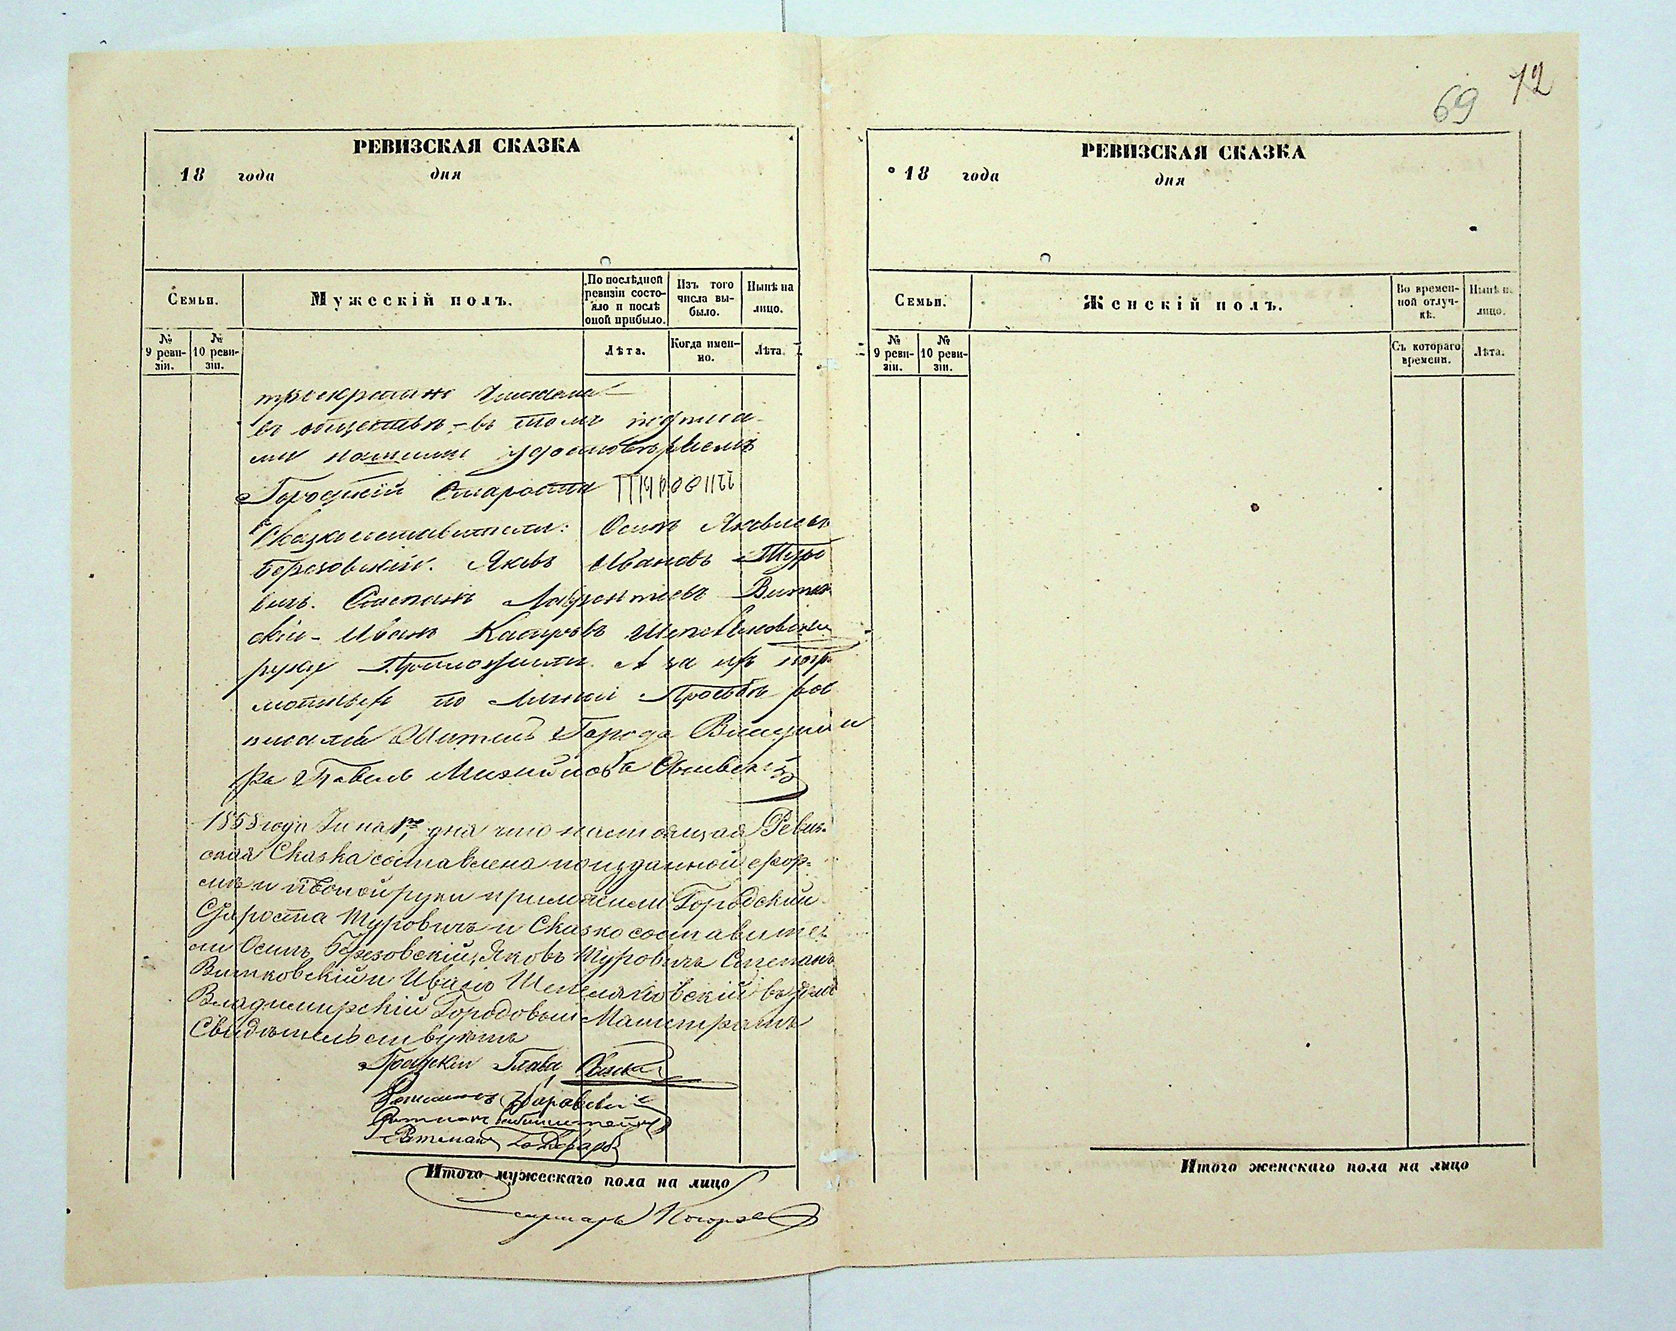 69 72
РЕВИЗСКАЯ СКАЗКА
18 года дня
Семьи.
Мужескій полъ.
По послѣдней ревизіи состо-
яло и послѣ
оной прибыло.
Изъ того
числа вы-
было.
Нынѣ на
лицо.
№
9 реви-
зіи.
№
10 реви-
зіи.
Лѣта.
Когда имен-
но.
Лѣта.
въ обществѣ – въ томъ подписа-
ми нашими удостовѣряемъ
Городскій Староста
Сказкосоставители: Осипъ Яковлевъ
Березовскій. Яковъ Ивановъ Туро
вичъ. Степанъ Лаврентіевъ Витков
скій – Иванъ Шепеляковскій
руку приложили. А за ихъ негра
мотныхъ по личной Просьбѣ рос
писался Житель Города Владими
ра Павелъ Михайловъ
1858 года Іюна дня что настоящая Ревиз-
ская Сказка составлена по изданной фор-
мѣ и къ оной руки приложили Городскій
Староста Туровичъ и Сказкосоставите-
ли Осипъ Березовскій, Яковъ Туровичъ Степанъ
Витковскій и Иванъ Шепеляковскій въ томъ
Владимирскій Городовый Магистратъ
Свидѣтельствуетъ
Градскій Глава
Ратманъ
Ратманъ
Ратманъ
Итого мужескаго пола на лицо
РЕВИЗСКАЯ СКАЗКА
18 года дня
Семьи.
Женскій полъ.
Во времен-
ной отлуч-
кѣ.
Нынѣ на
лицо.
№
9 реви-
зіи.
№
10 реви-
зіи.
Съ котораго
времени.
Лѣта.
Итого женскаго пола на лицо